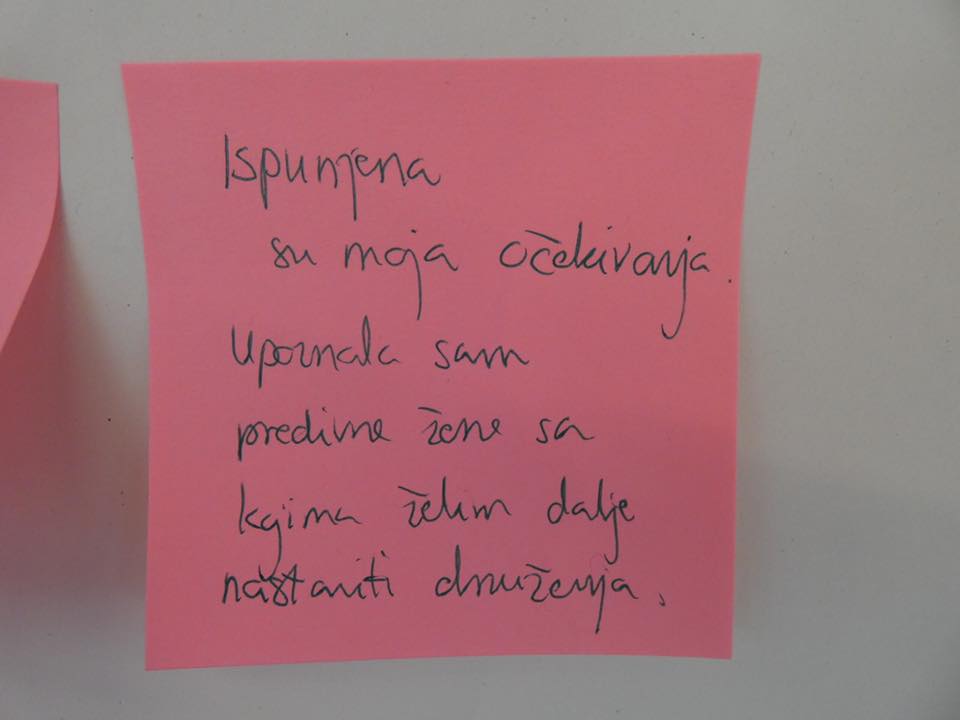 Ispunjena
su moja očekivanja.
Upoznala sam
predivne žene sa
kojima želim dalje
nastaviti druženja.